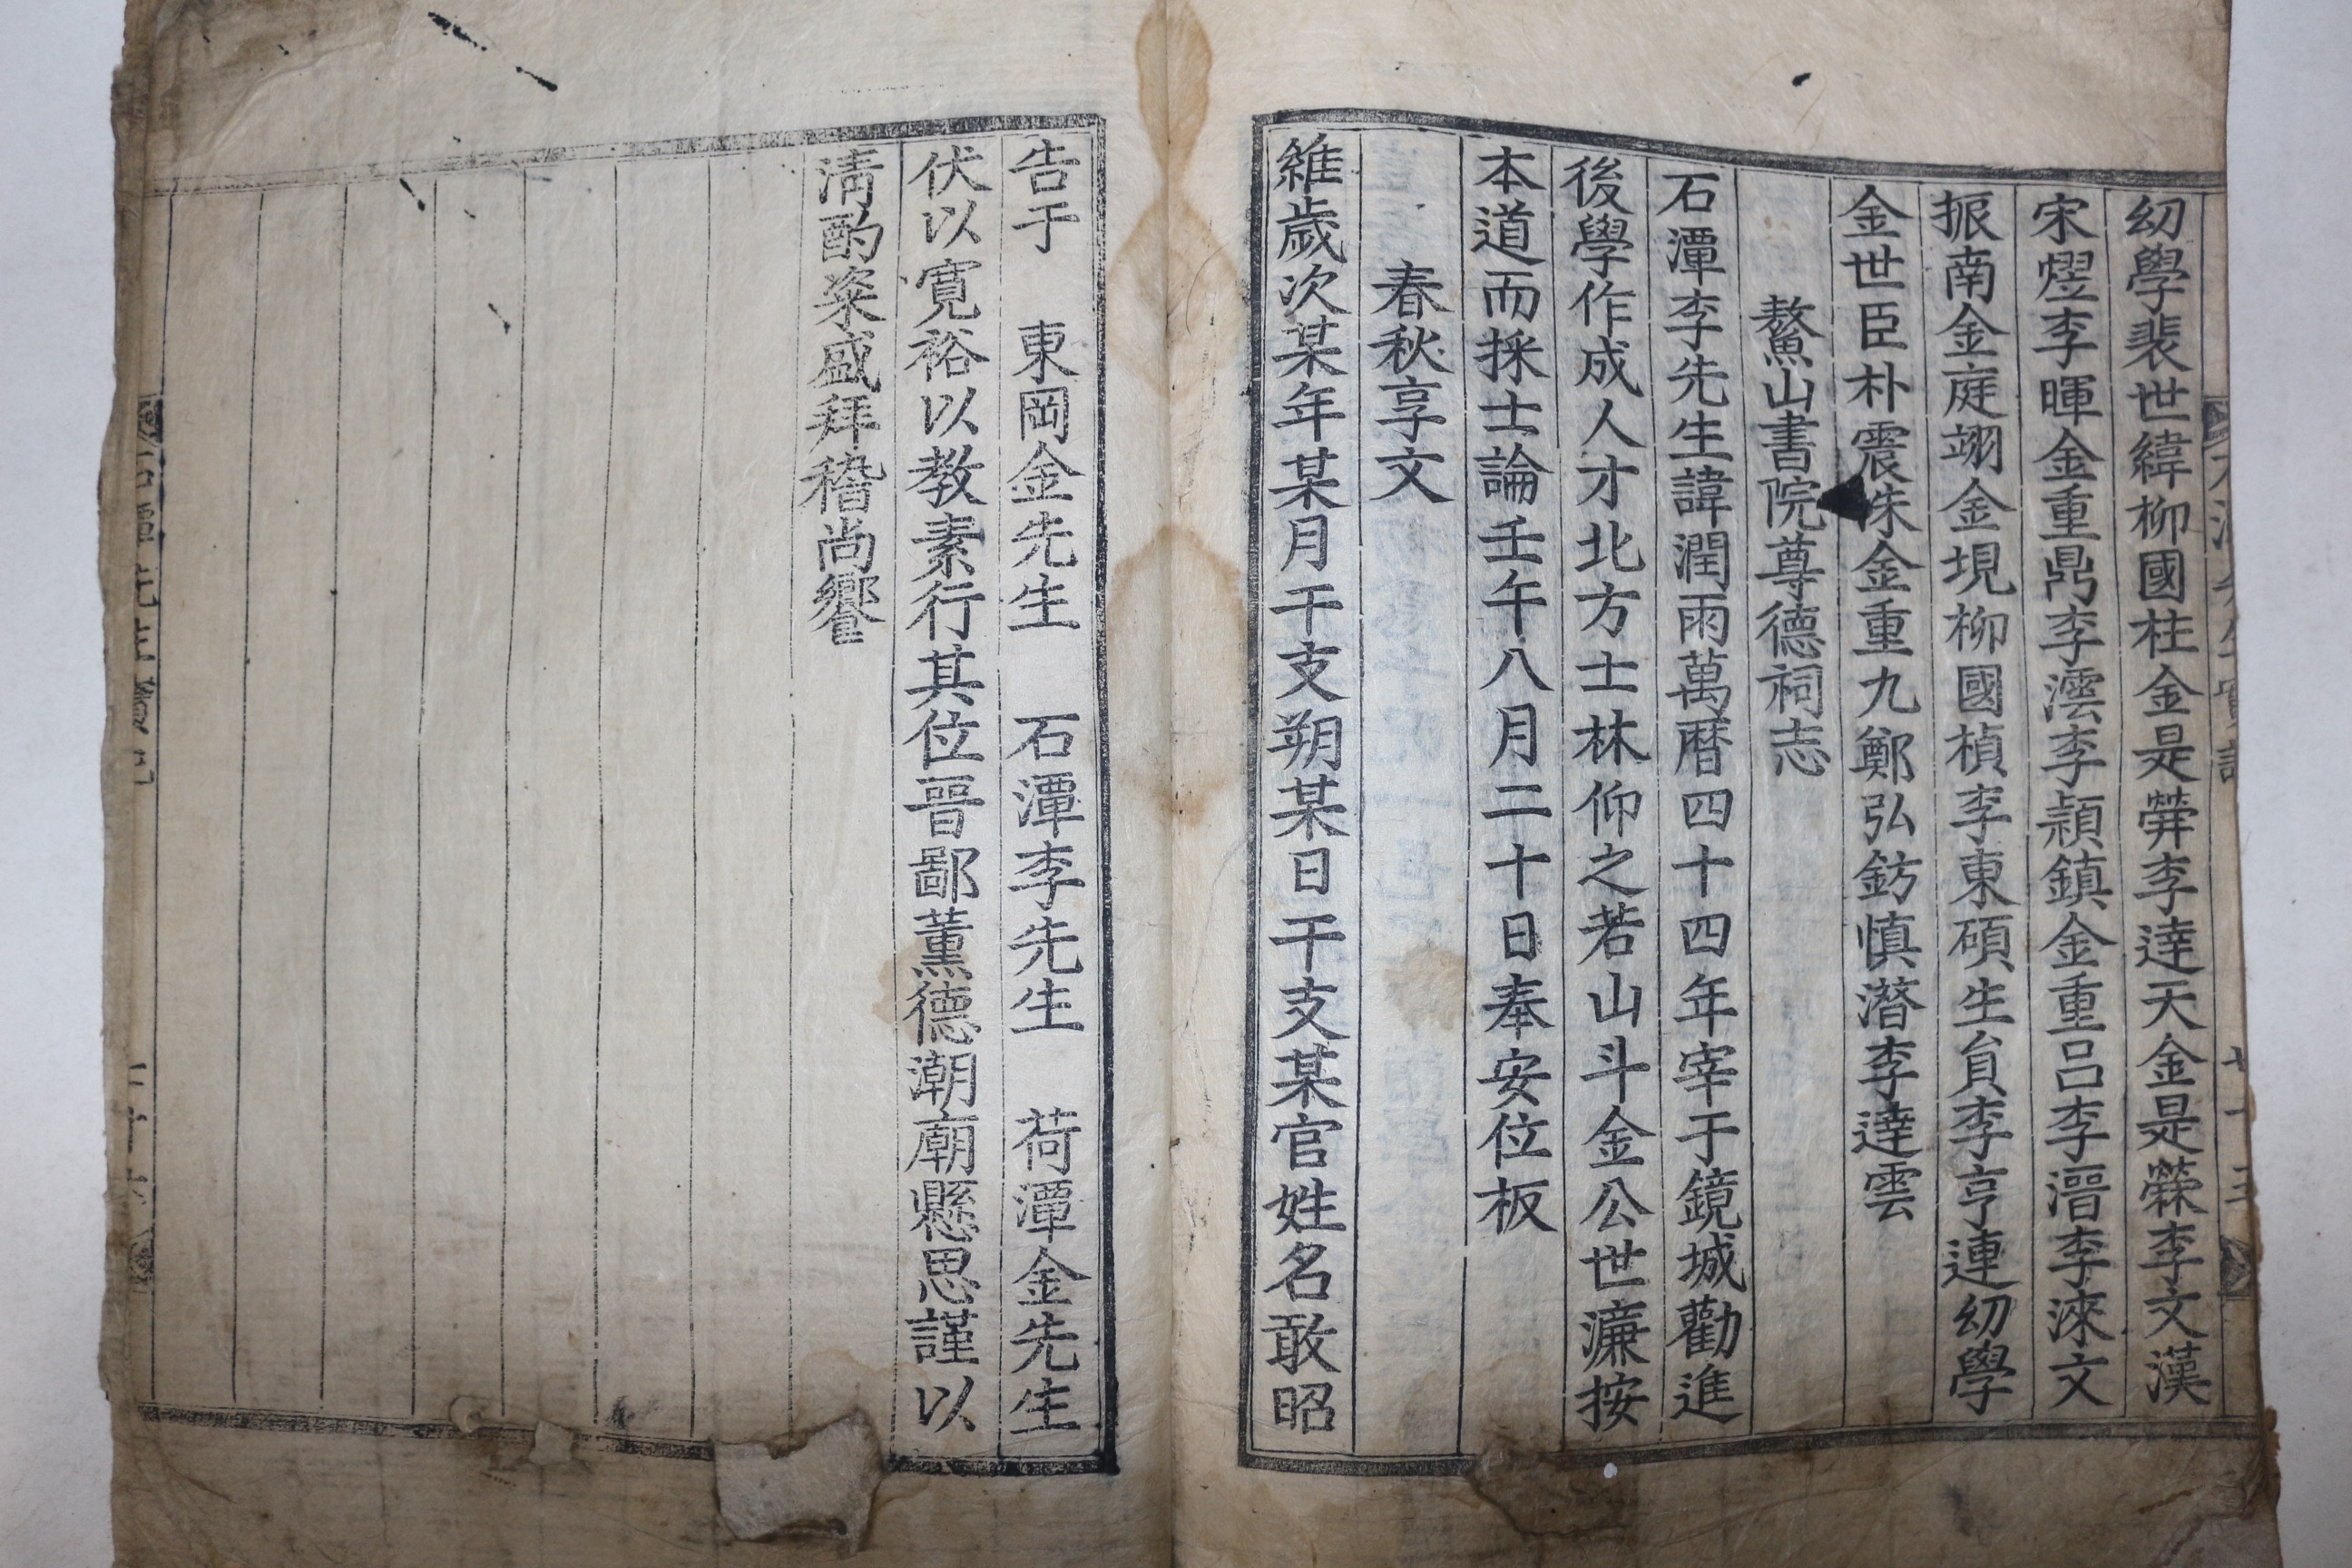 幼學裴世緯柳國柱金是㷯李逹天金是榮李文漢
宋熤李暉金重鼎李澐李頴鎮金重呂李溍李淶文
振南金庭翊金垷柳國楨李東碩生員李亨連幼學
金世臣朴震 金重九鄭弘鈁慎濳李逹雲
鰲山書院尊德祠志
石潭李先生諱潤雨萬曆四十四年宰于鏡城勸進
後學作成人才北方士林仰之若山斗金公世濂按
本道而採士論壬午八月二十日奉安位板
春秋享文
維歲次某年某月干支朔某日干支某官姓名敢昭
告于 東岡金先生 石潭李先生 荷潭金先生
伏以寬裕以教素行其位晉鄙薰德潮廟懸思謹以
淸酌粢盛拜稽尚饗